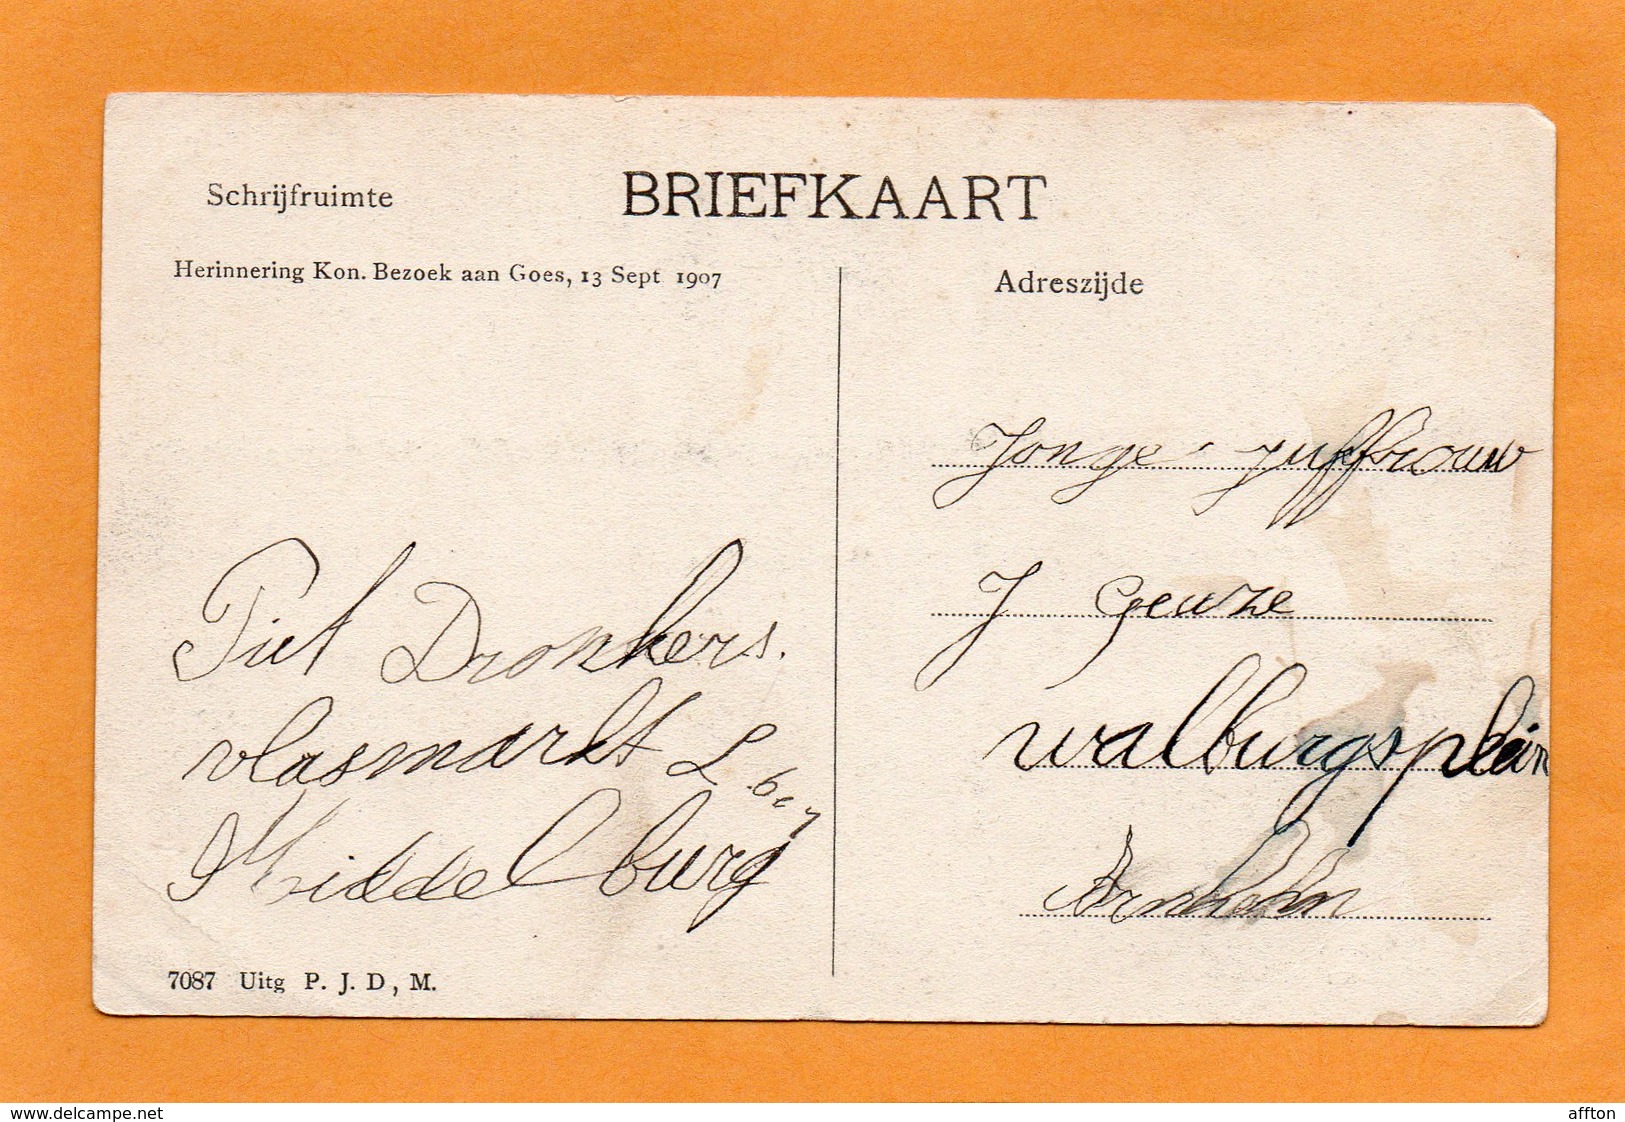 BRIEFKAART
Schrijfruimte
Herinnering Kon. Bezoek aan Goes, 13 Sept 1907
Piet Dronkers.
vlasmarkt L
Middelburg
7087 Uitg P. J. D, M.
Adreszijde
Jonge juffrouw
J Geuze
walburgsplein
Arnhehm
www.delcampe.net
affton